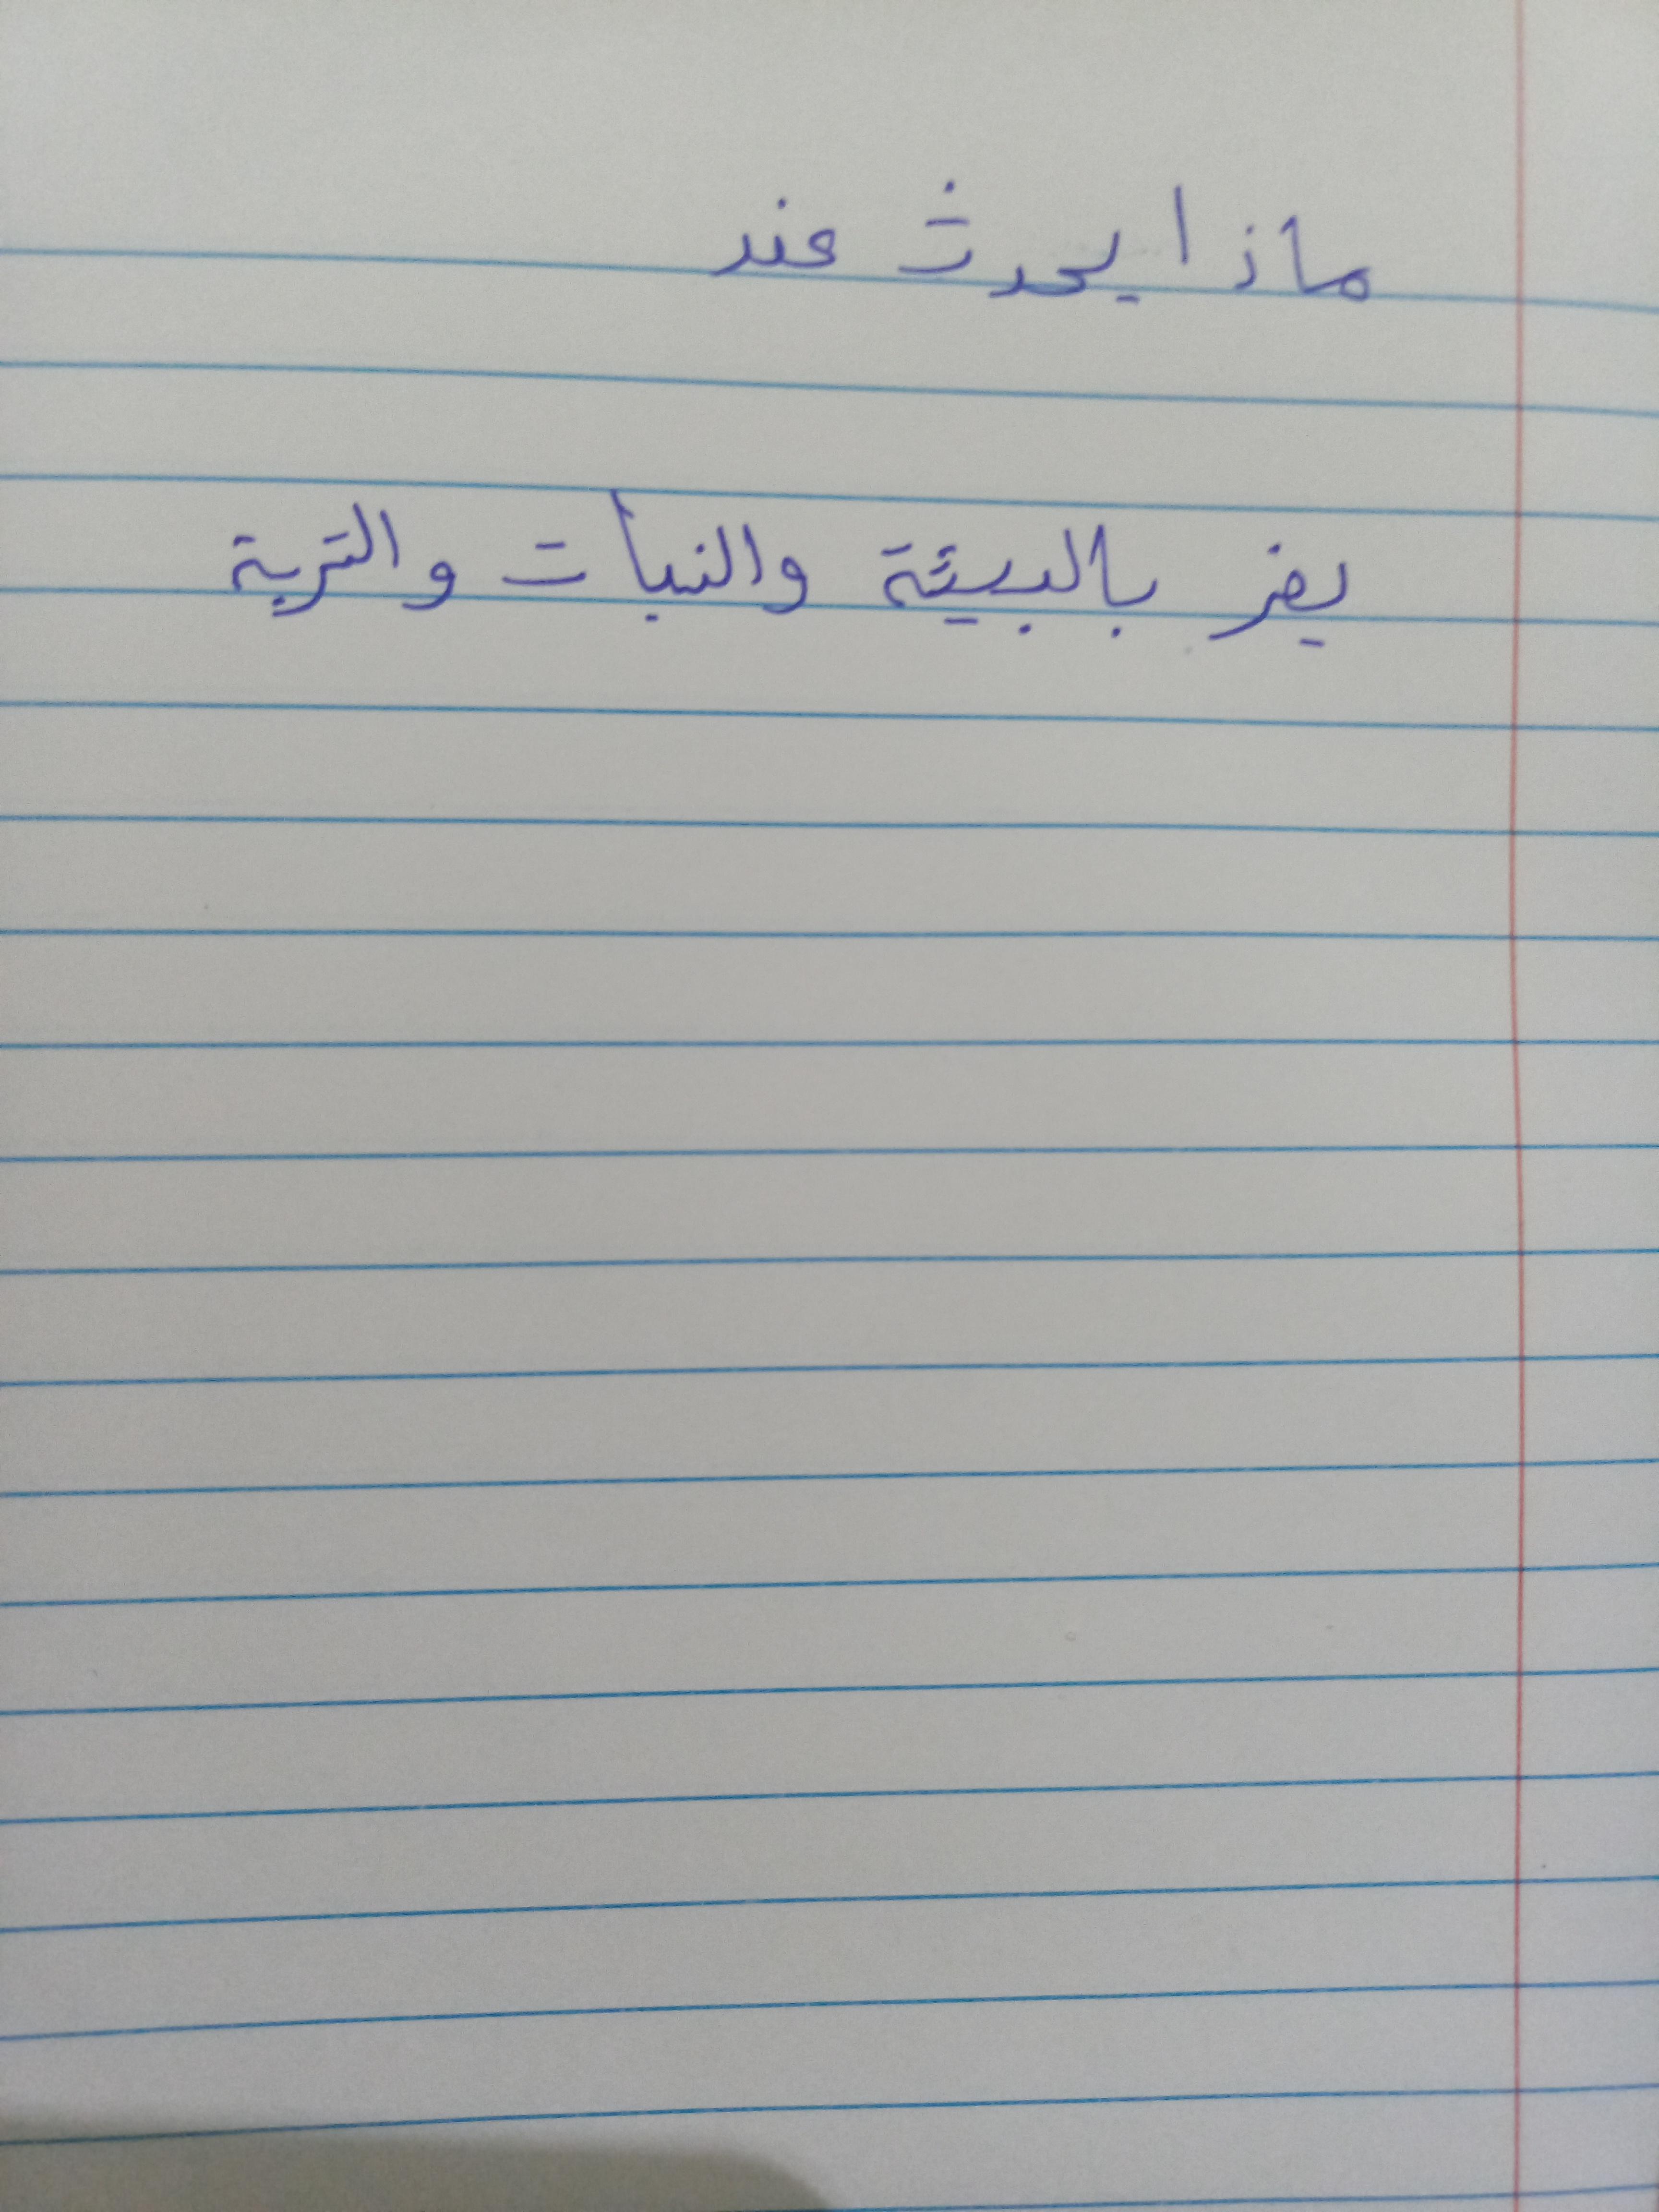 ماذا يحدث عند
يضر بالبيئة والنبات والتربة